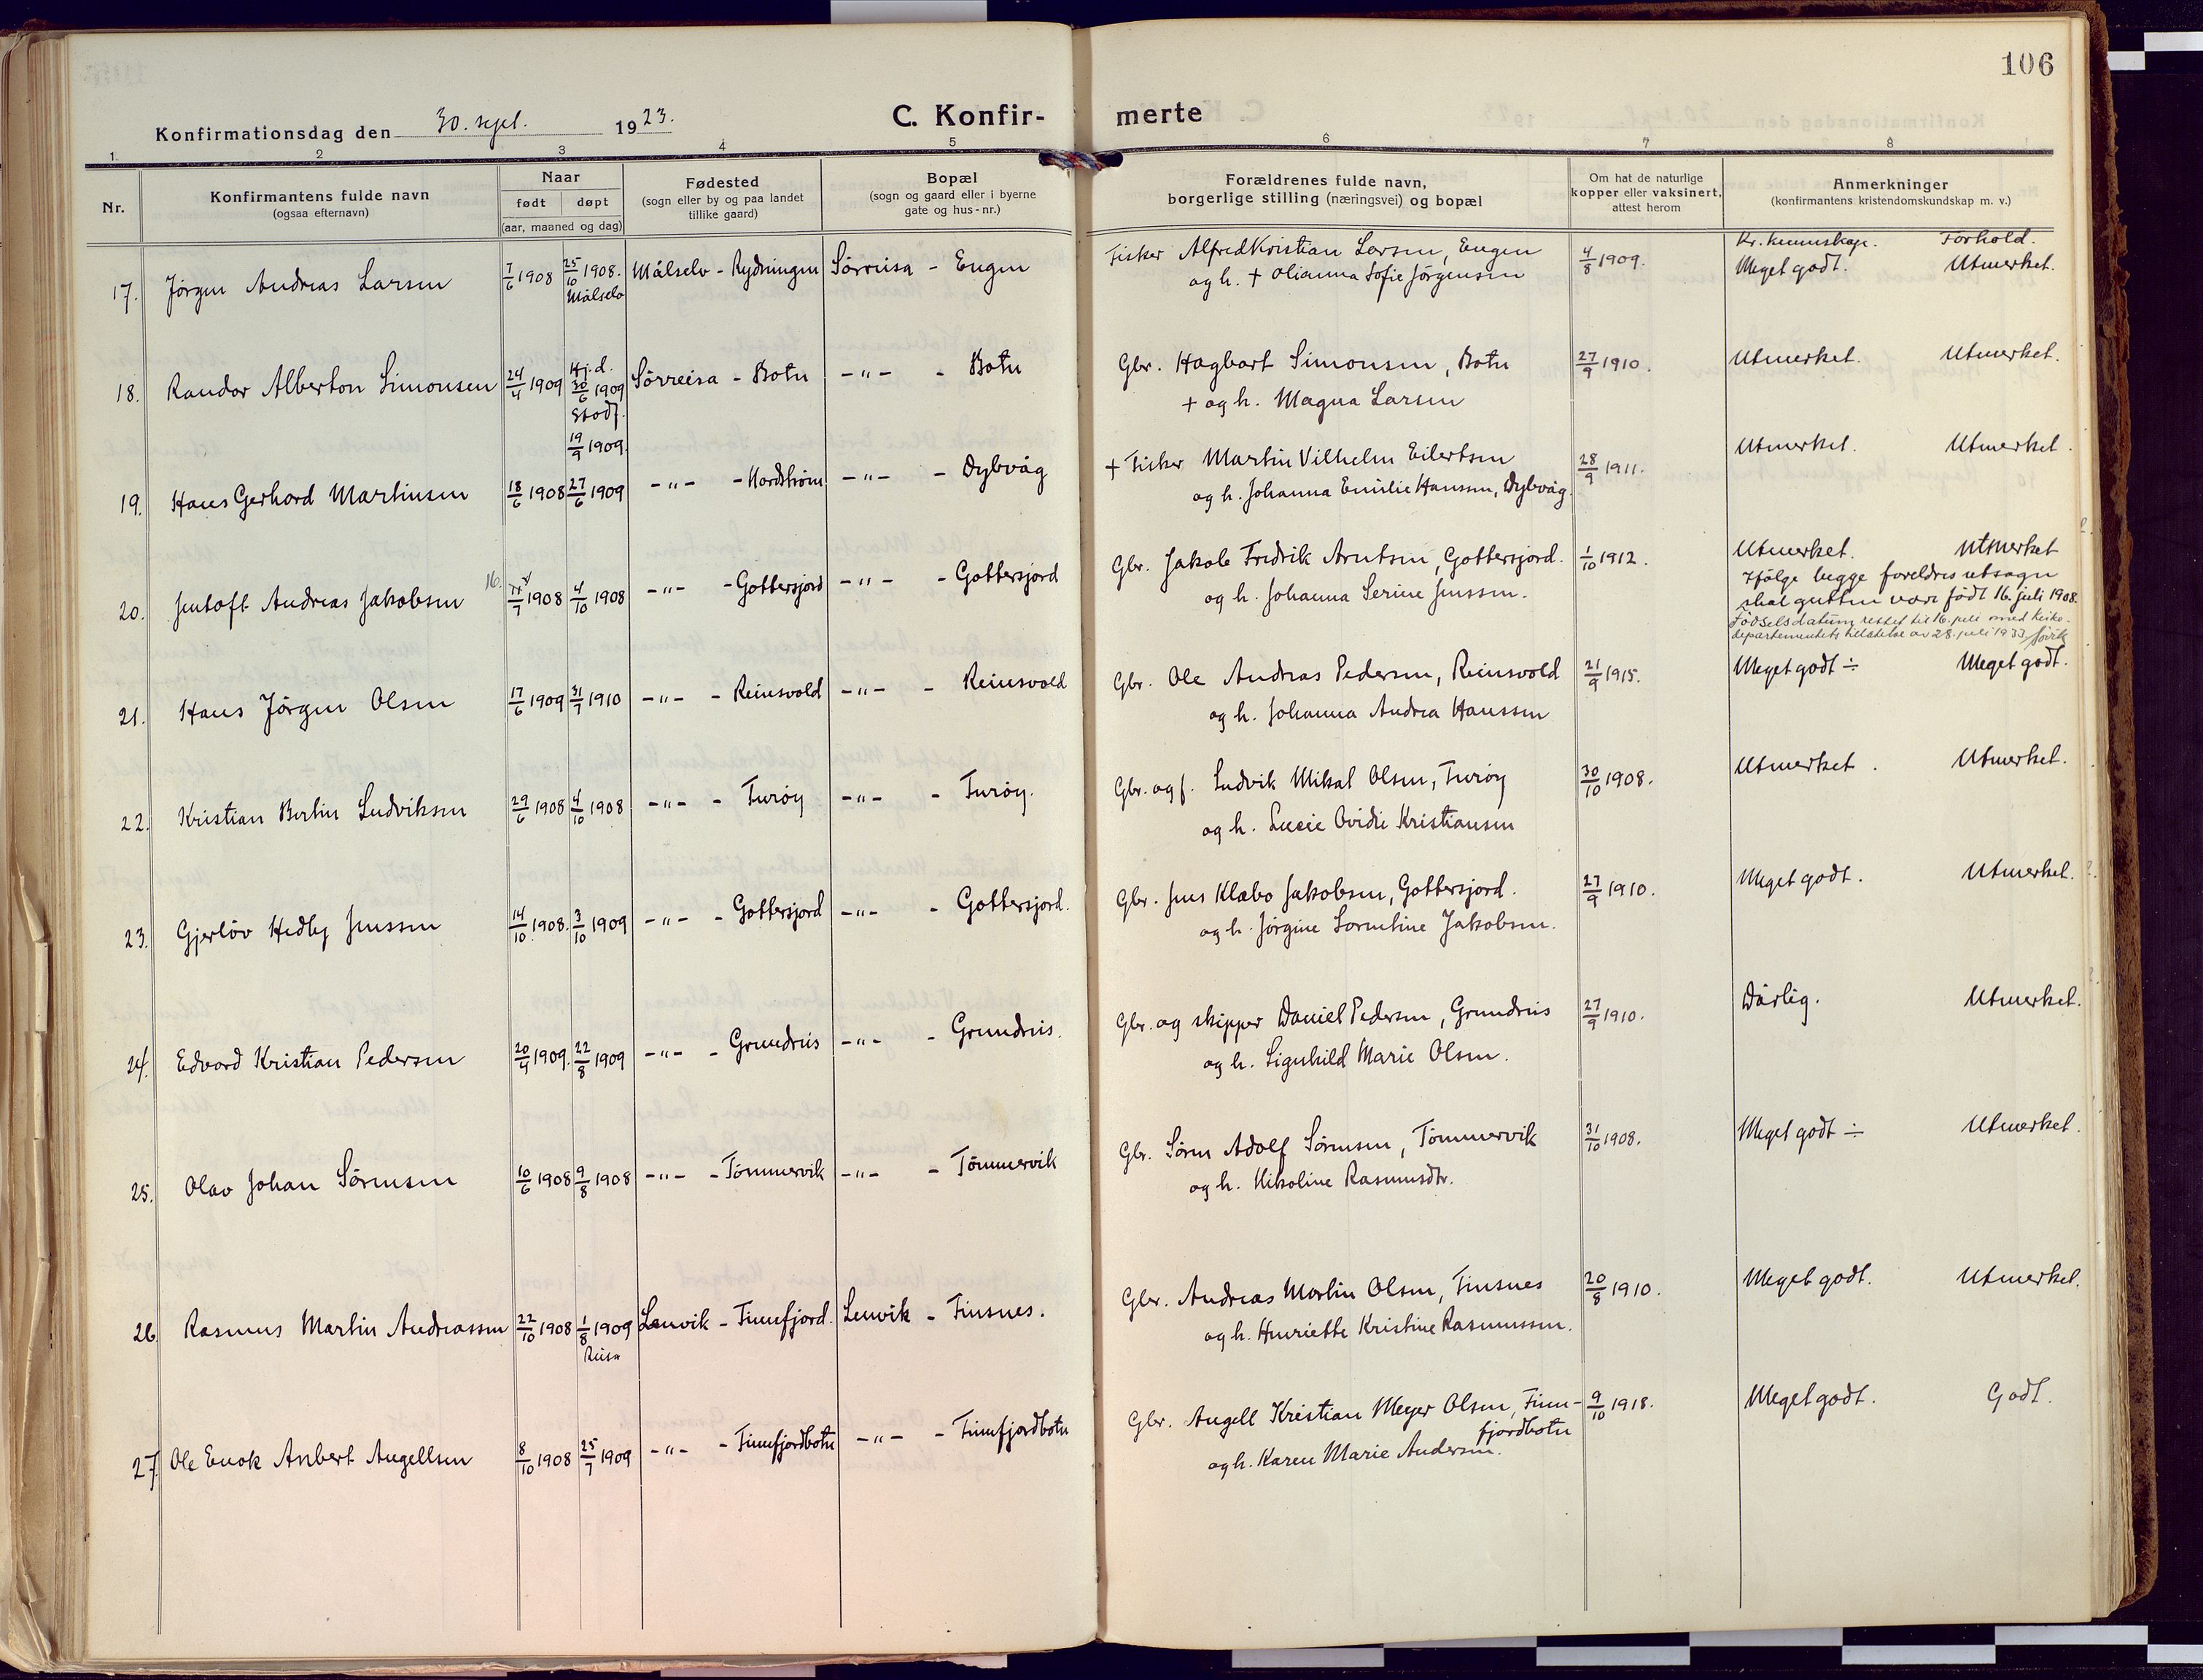 106
Konfirmationsdag den 30. sept. 1923.
C. Konfir- merte
1. 2 3 4 5 6 7 8
Nr.
Konfirmantens fulde navn
(ogsaa efternavn)
Naar
født døpt
(aar, maaned og dag)
Fødested
(sogn eller by og paa landet
tillike gaard)
Bopæl
(sogn og gaard eller i byerne
gate og hus-nr.)
Forældrenes fulde navn,
borgerlige stilling (næringsvei) og bopæl
Om hat de naturlige
kopper eller vaksinert,
attest herom
Anmerkninger
(konfirmantens kristendomskundskap m. v.)
Kr. kunnskap. Forhold.
17. Jørgen Andreas Larsen 7/6 1908 25/10 1908. Målselv Målselv - Rydningen Sørreisa - Eugen
Fisker Alfred Kristian Larsen, Eugen
og h. + Olianna Sofie Jørgensen
4/8 1909. Meget godt. Utmerket.
18. Randor Alberton Simonsen 24/4 1909 Hj. d. 30/6 1909 Stadf. 19/9 1909. Sørreisa - Botn -"- - Botn
Gbr. Hagbart Simonsen, Botn
+ og h. Magna Larsen
27/9 1910. Utmerket. Utmerket.
19. Hans Gerhard Martinsen 18/6 1908 27/6 1909 -"- - Nordstrøm -"- - Dybvåg
+ Fisker Martin Vilhelm Eilertsen
og h. Johanna Emilie Hanssen, Dybvåg.
28/9 1911. Utmerket. Utmerket.
20. Jentoft Andreas Jakobsen 16. /7 1908 4/10 1908 -"- - Gottersjord -"- - Gottersjord
Gbr. Jakob Fredrik Arntsen, Gottersjord.
og h. Johanna Serine Jenssen.
1/10 1912. Utmerket. Utmerket
Ifölge begge foreldres utsagn
skal gutten være født 16. juli 1908.
Födselsdatum rettet til 16. juli med kirke-
departementets tillatelse av 28. juli 1933
21. Hans Jørgen Olsen 17/6 1909 31/7 1910 -"- - Reinsvold -"- - Reinsvold
Gbr. Ole Andreas Pedersen, Reinsvold
og h. Johanna Andrea Hanssen
21/9 1915. Meget godt ÷ Meget godt.
22. Kristian Bertin Ludviksen 29/6 1908 4/10 1908 -"- - Furøy -"- - Furøy.
Gbr. og f. Ludvik Mikal Olsen, Furøy
og h. Lucie Ovidie Kristiansen
30/10 1908. Utmerket. Utmerket.
23. Gjerløv Hedly Jenssen 14/10 1908. 3/10 1909 -"- - Gottersjord -"- - Gottersjord.
Gbr. Jens Klæbo Jakobsen, Gottersjord.
og h. Jørgine Lorentine Jakobsen.
27/9 1910. Meget godt. Utmerket.
24. Edvard Kristian Pedersen 20/4 1909. 22/8 1909 -"- - Grundreis -"- - Grundreis.
Gbr. og skipper Daniel Pedersen, Grundreis
og h. Signhild Marie Olsen.
27/9 1910. Dårlig. Utmerket.
25. Olav Johan Sørensen 10/6 1908 9/8 1908 -"- - Tömmervik -"- - Tömmervik
Gbr. Søren Adolf Sørensen, Tömmervik
og h. Nikoline Rasmusdtr.
31/10 1908. Meget godt ÷ Utmerket.
26. Rasmus Martin Andreassen 22/10 1908 1/8 1909 Reisa Lenvik - Finnfjord. Lenvik - Finsnes.
Gbr. Andreas Martin Olsen, Finsnes
og h. Henriette Kristine Rasmussen.
20/8 1910. Meget godt. Utmerket.
27. Ole Enok Anbert Angellsen 8/10 1908 25/7 1909 -"- - Finnfjordbotn -"- - Finnfjordbotn
Gbr. Angell Kristian Meyer Olsen, Finn-
fjordbotn
og h. Karen Marie Andersen.
9/10 1918. Meget godt. Godt.